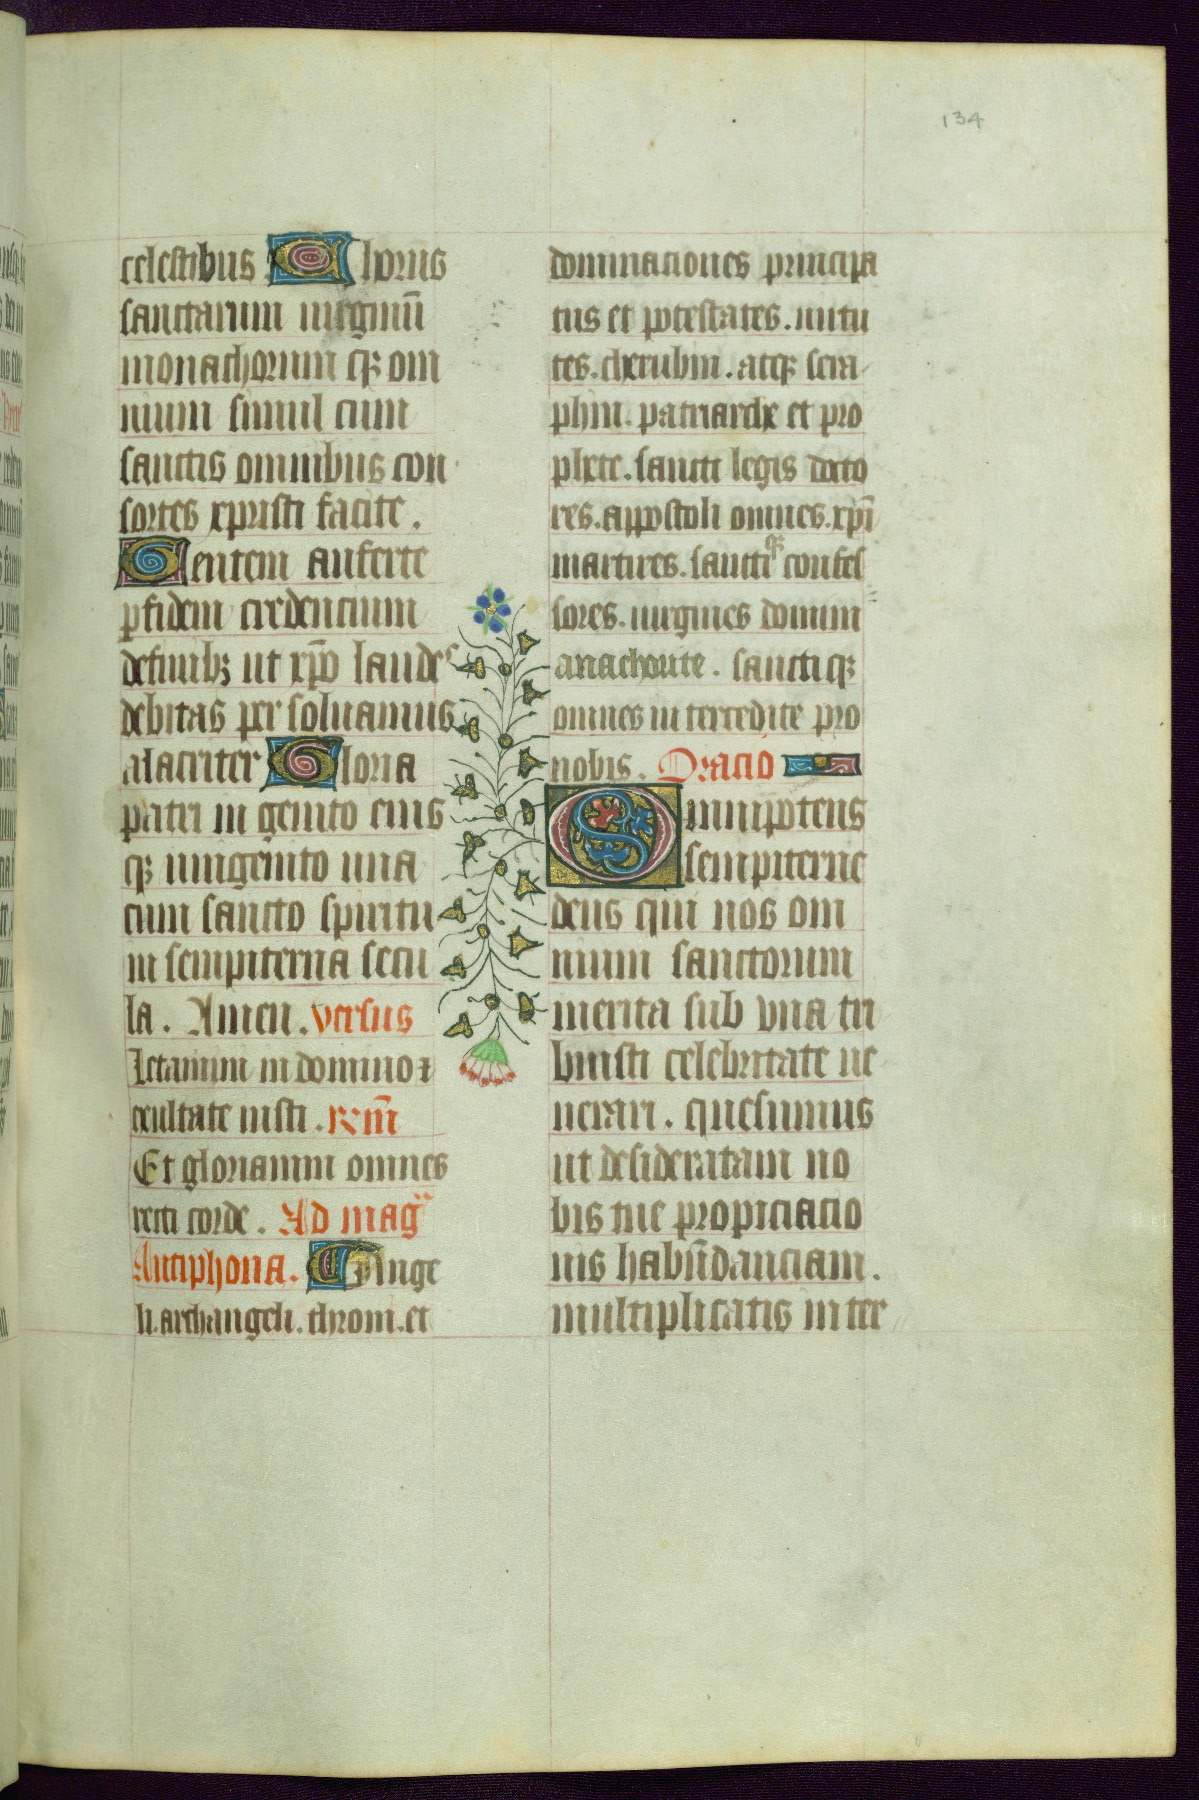 134
celestibus Chorus
sanctarum uirginū
monachorum qꝫ om
nium simul cum
sanctis omnibus con
sortes xpristi facite.
Gentem auferte
ꝑfidem credencium
definibꝫ ut xp̄o laudes
debitas per soluamus
alacriter Gloria
patri in genito eius
qꝫ unigenito una
cum sancto spiritu
in sempiterna secu
la. Amen. versus
Letamini in domino ⁊
exultate iusti. Rm̄
Et gloriamini omnes
recti corde. Ad mag
Antiphona. Ange
li. archangeli. throni. et
dominaciones principa
tus et potestates. uirtu
tes. cherubin. atqꝫ sera
phin. patriarche et pro
phete. sancti legis docto
res. appostoli omnes. xp̄i
martires. sanctiqꝫ confes
sores. uirgines domini
anachorite. sanctiqꝫ
omnes in tercedite pro
nobis. Oracio
Omnipotens
sempiterne
deus qui nos om
nium sanctorum
merita sub vna tri
buisti celebritate ue
nerari. quesumus
ut desideratam no
bis tue propiciacio
nis habūdanciam.
multiplicatis in ter